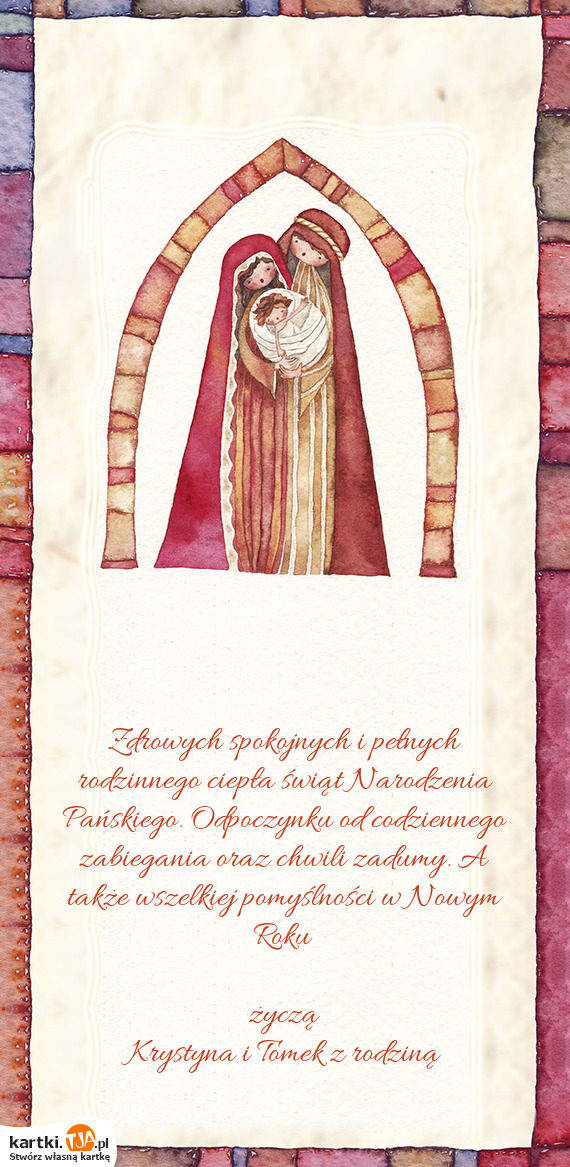 Zdrowych spokojnych i pełnych
rodzinnego ciepła świąt Narodzenia
Pańskiego. Odpoczynku od codziennego
zabiegania oraz chwili zadumy. A
także wszelkiej pomyślności w Nowym
Roku
życzą
Krystyna i Tomek z rodziną
kartki.TJA.pl
Stwórz własną kartkę